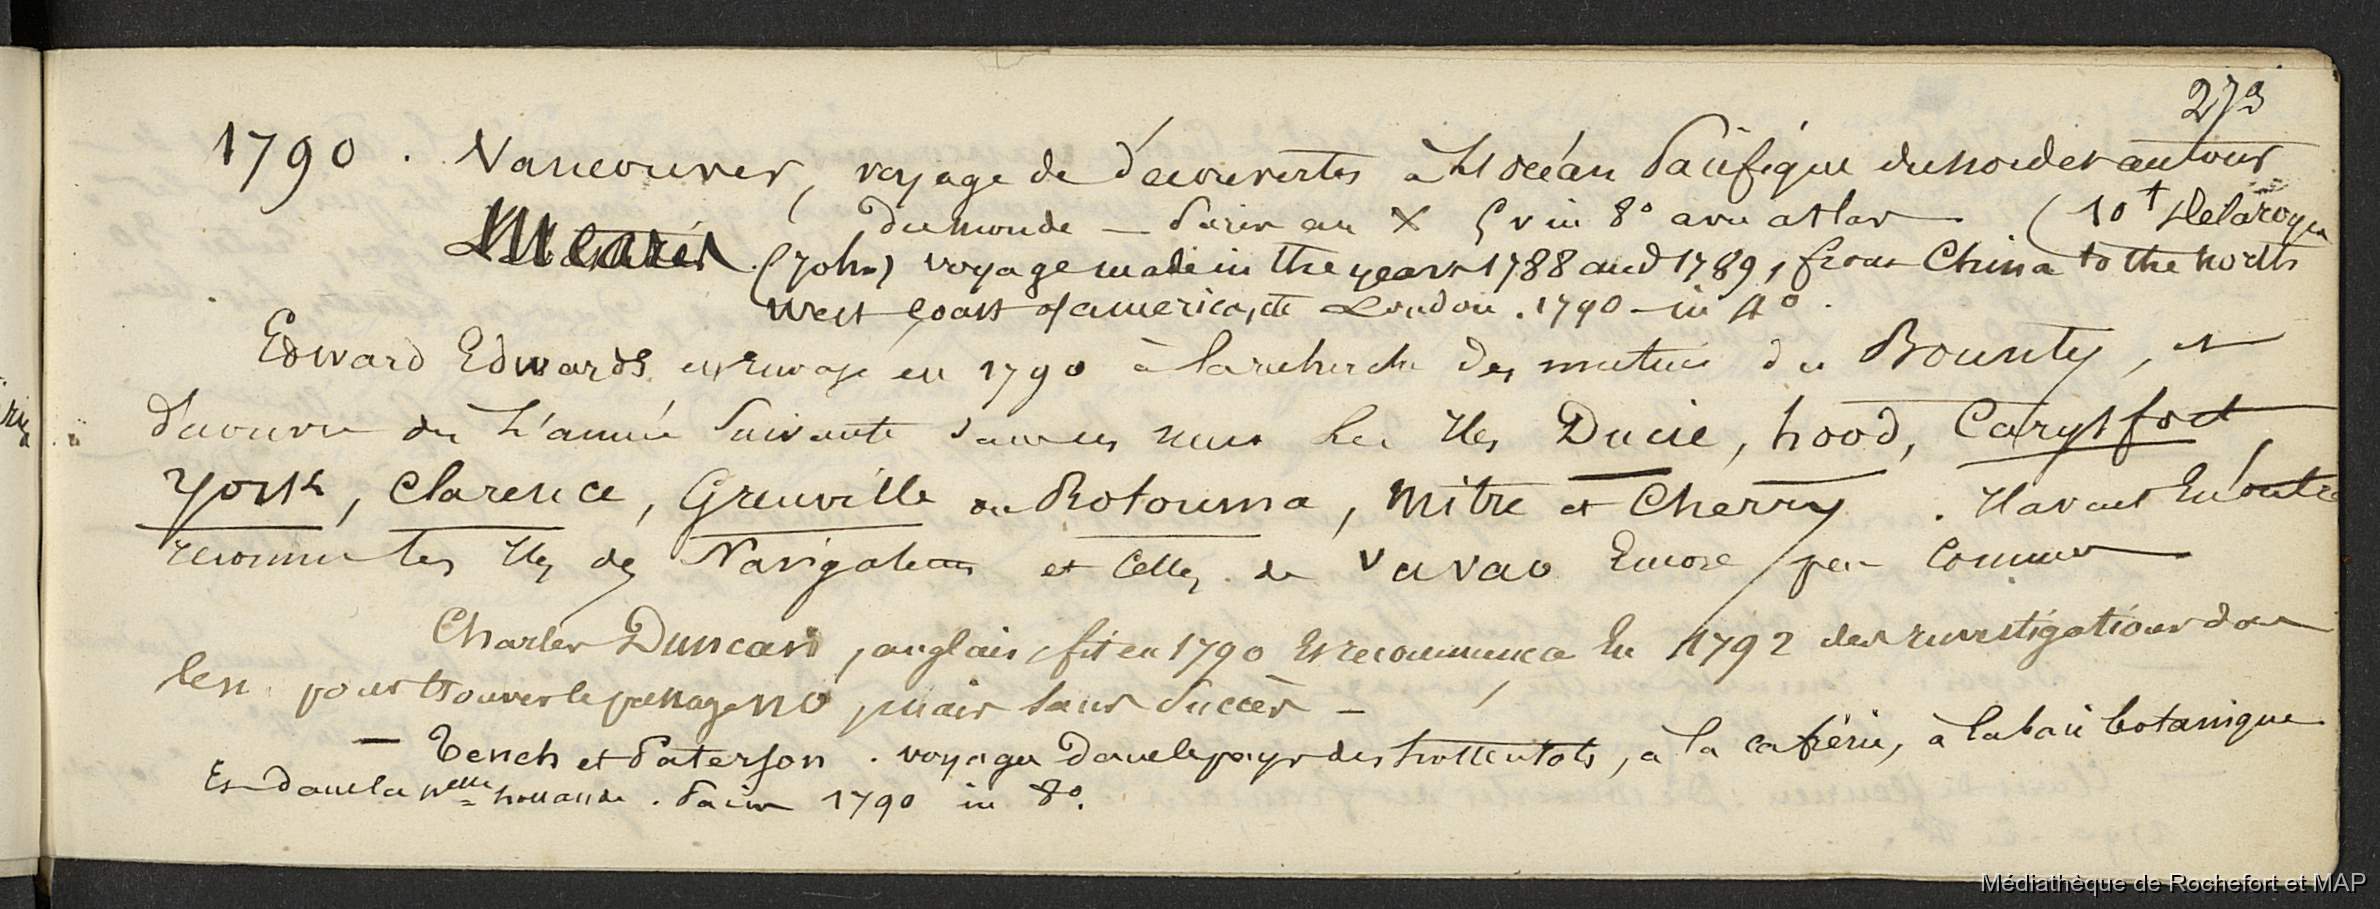 273
1790. Vancouver, voyage de découvertes à l'océan Pacifique du nord et autour
du monde — Paris an X 5 v in 8° avec atlas — (10t Delaroque
Meares (John) voyage made in the years 1788 and 1789, from China to the north
West Coast of america, etc London. 1790 — in 4°.
Edward Edwards est envoyé en 1790 à la recherche des mutins du Bounty, et
découvre dans l'année suivante les Iles Ducie, hood, Carysfort
York, Clarence, Grenville ou Rotouma, Mitre et Cherry. Il avait En outre
reconnu les Iles des Navigateurs et Celles de Vavao Encore peu Connues
Charles Duncan, anglais, fit en 1790 Et recommenca En 1792 des investigations dans
le n. pour trouver le passage NO, mais sans Succès —
— Tench et Paterson. voyages Dans le pays des hottentots, à la cafrerie, à la baie botanique
Et dans la nelle hollande. Paris 1790 in 8°.
Médiathèque de Rochefort et MAP